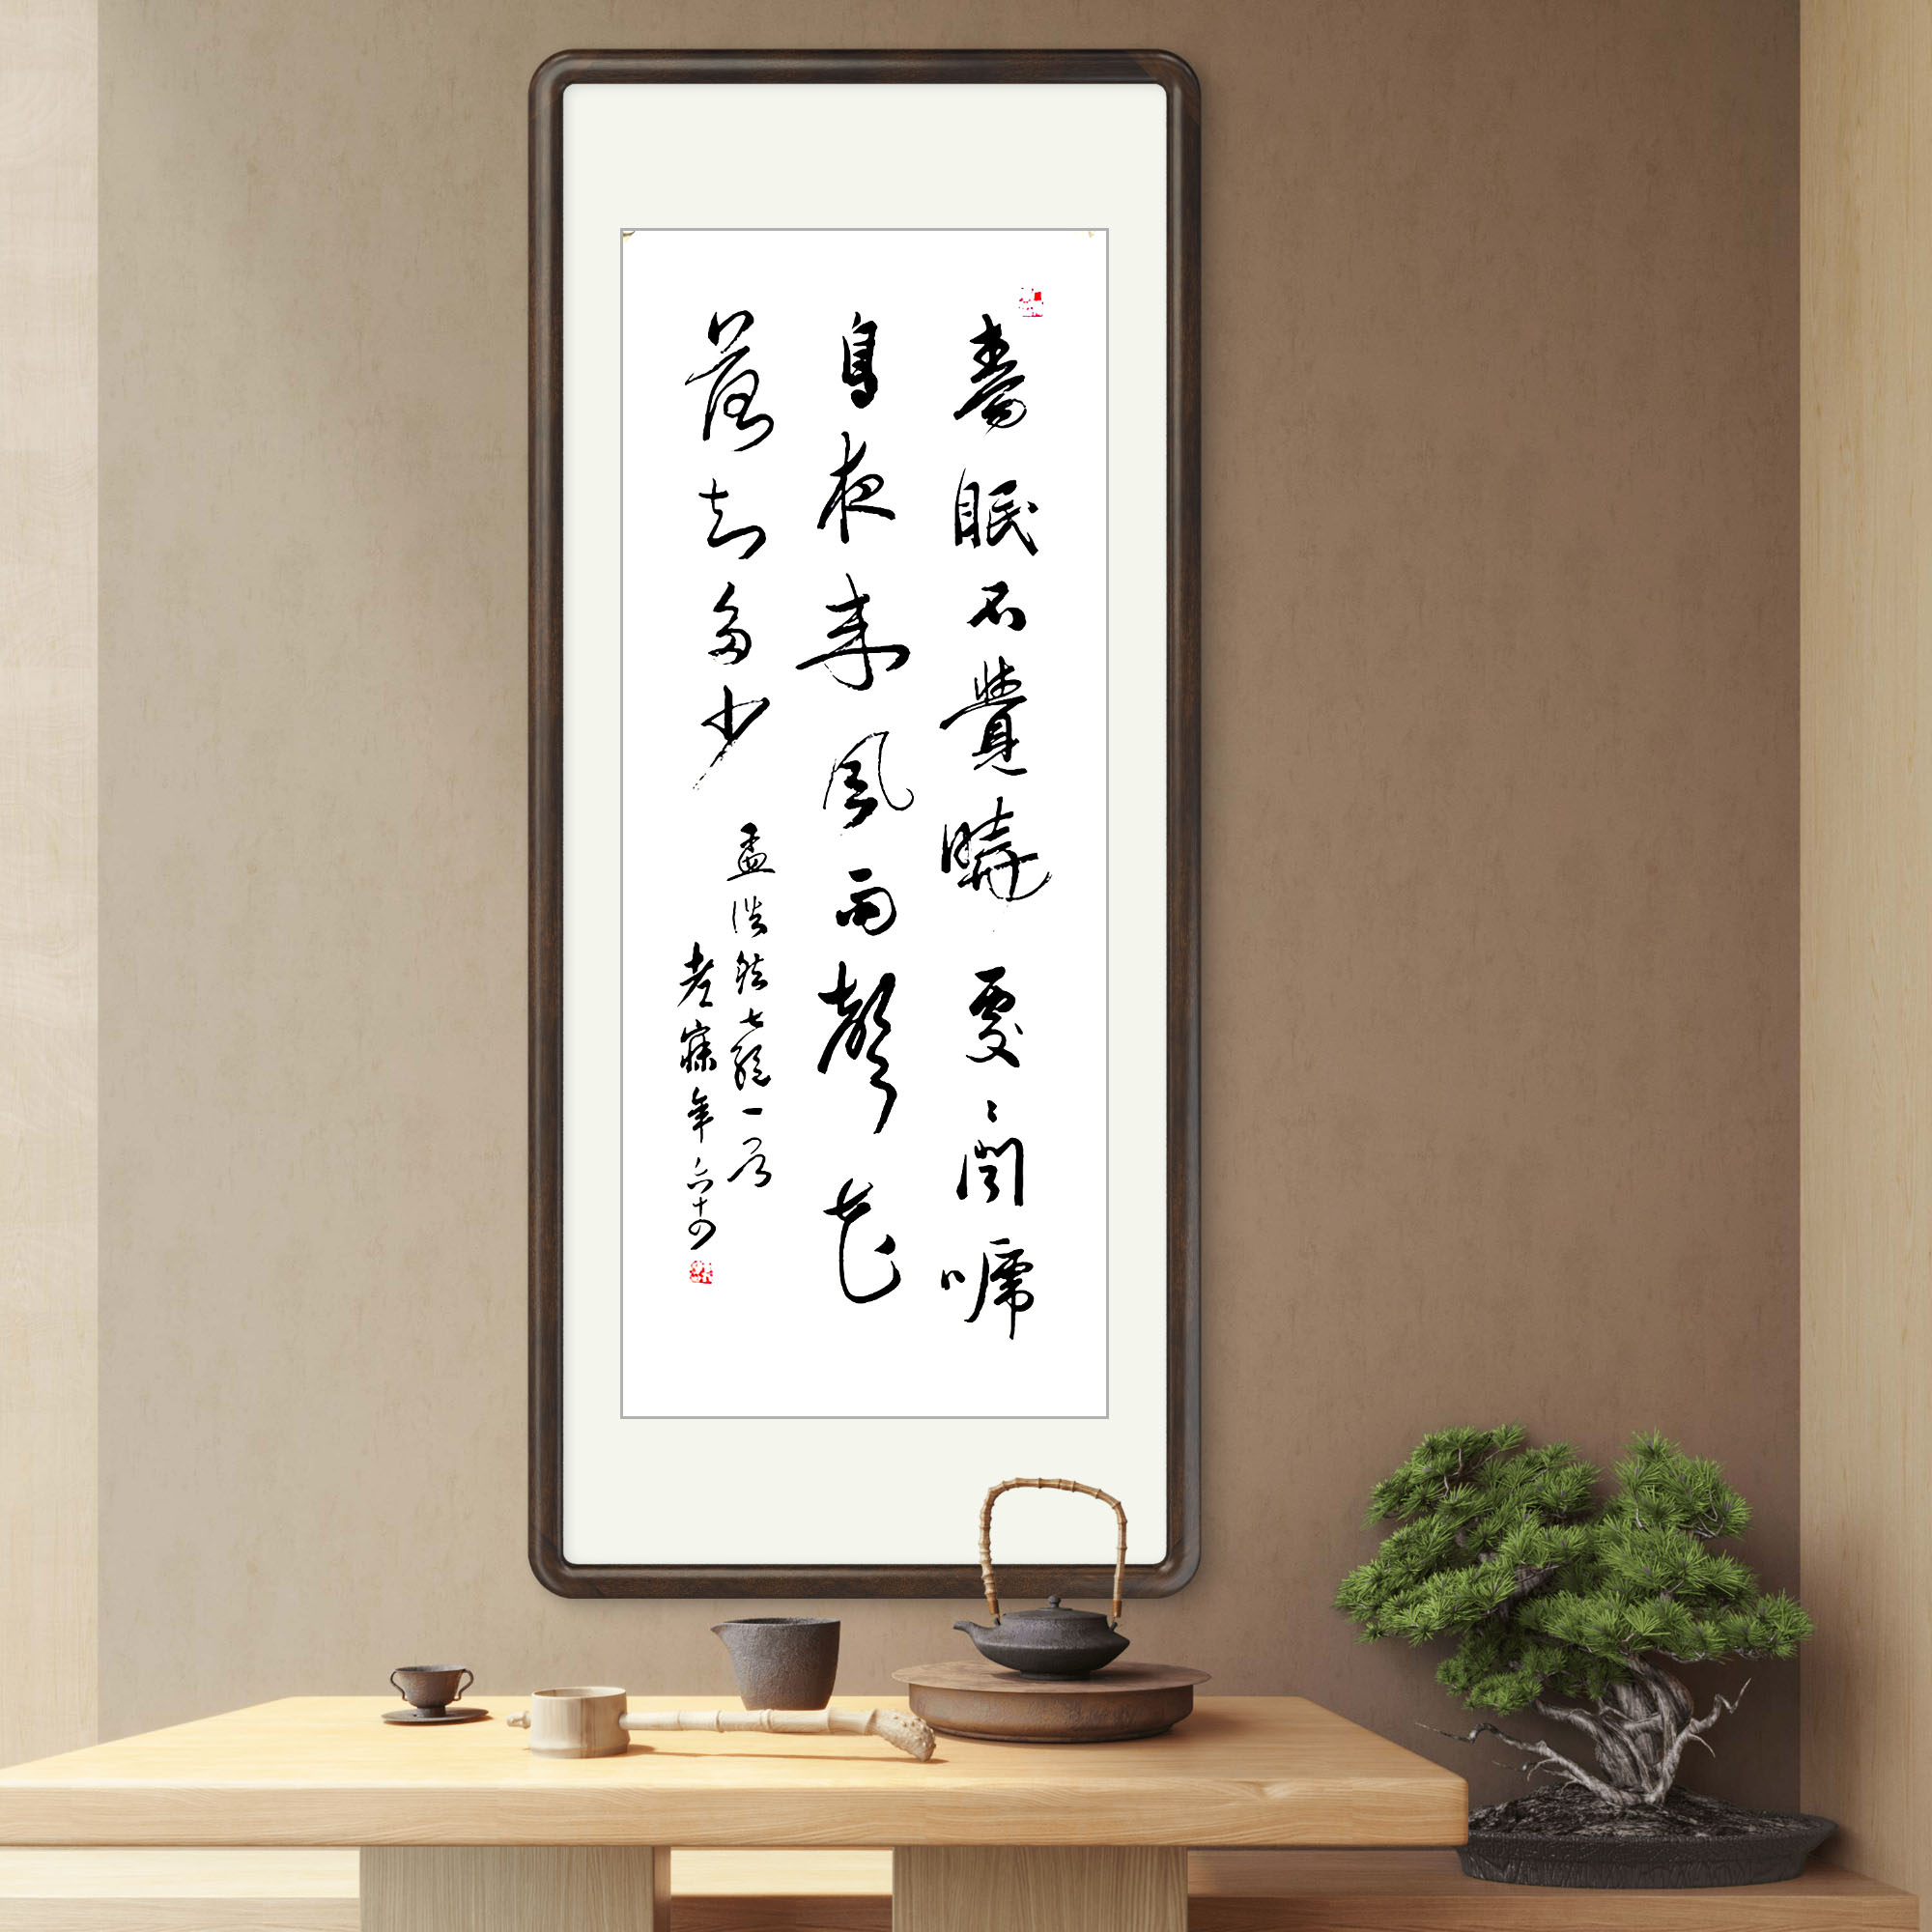 春眠不覺曉處々聞啼
鳥夜來風雨聲花
落知多少
孟浩然七絕一首
老寐年六十四